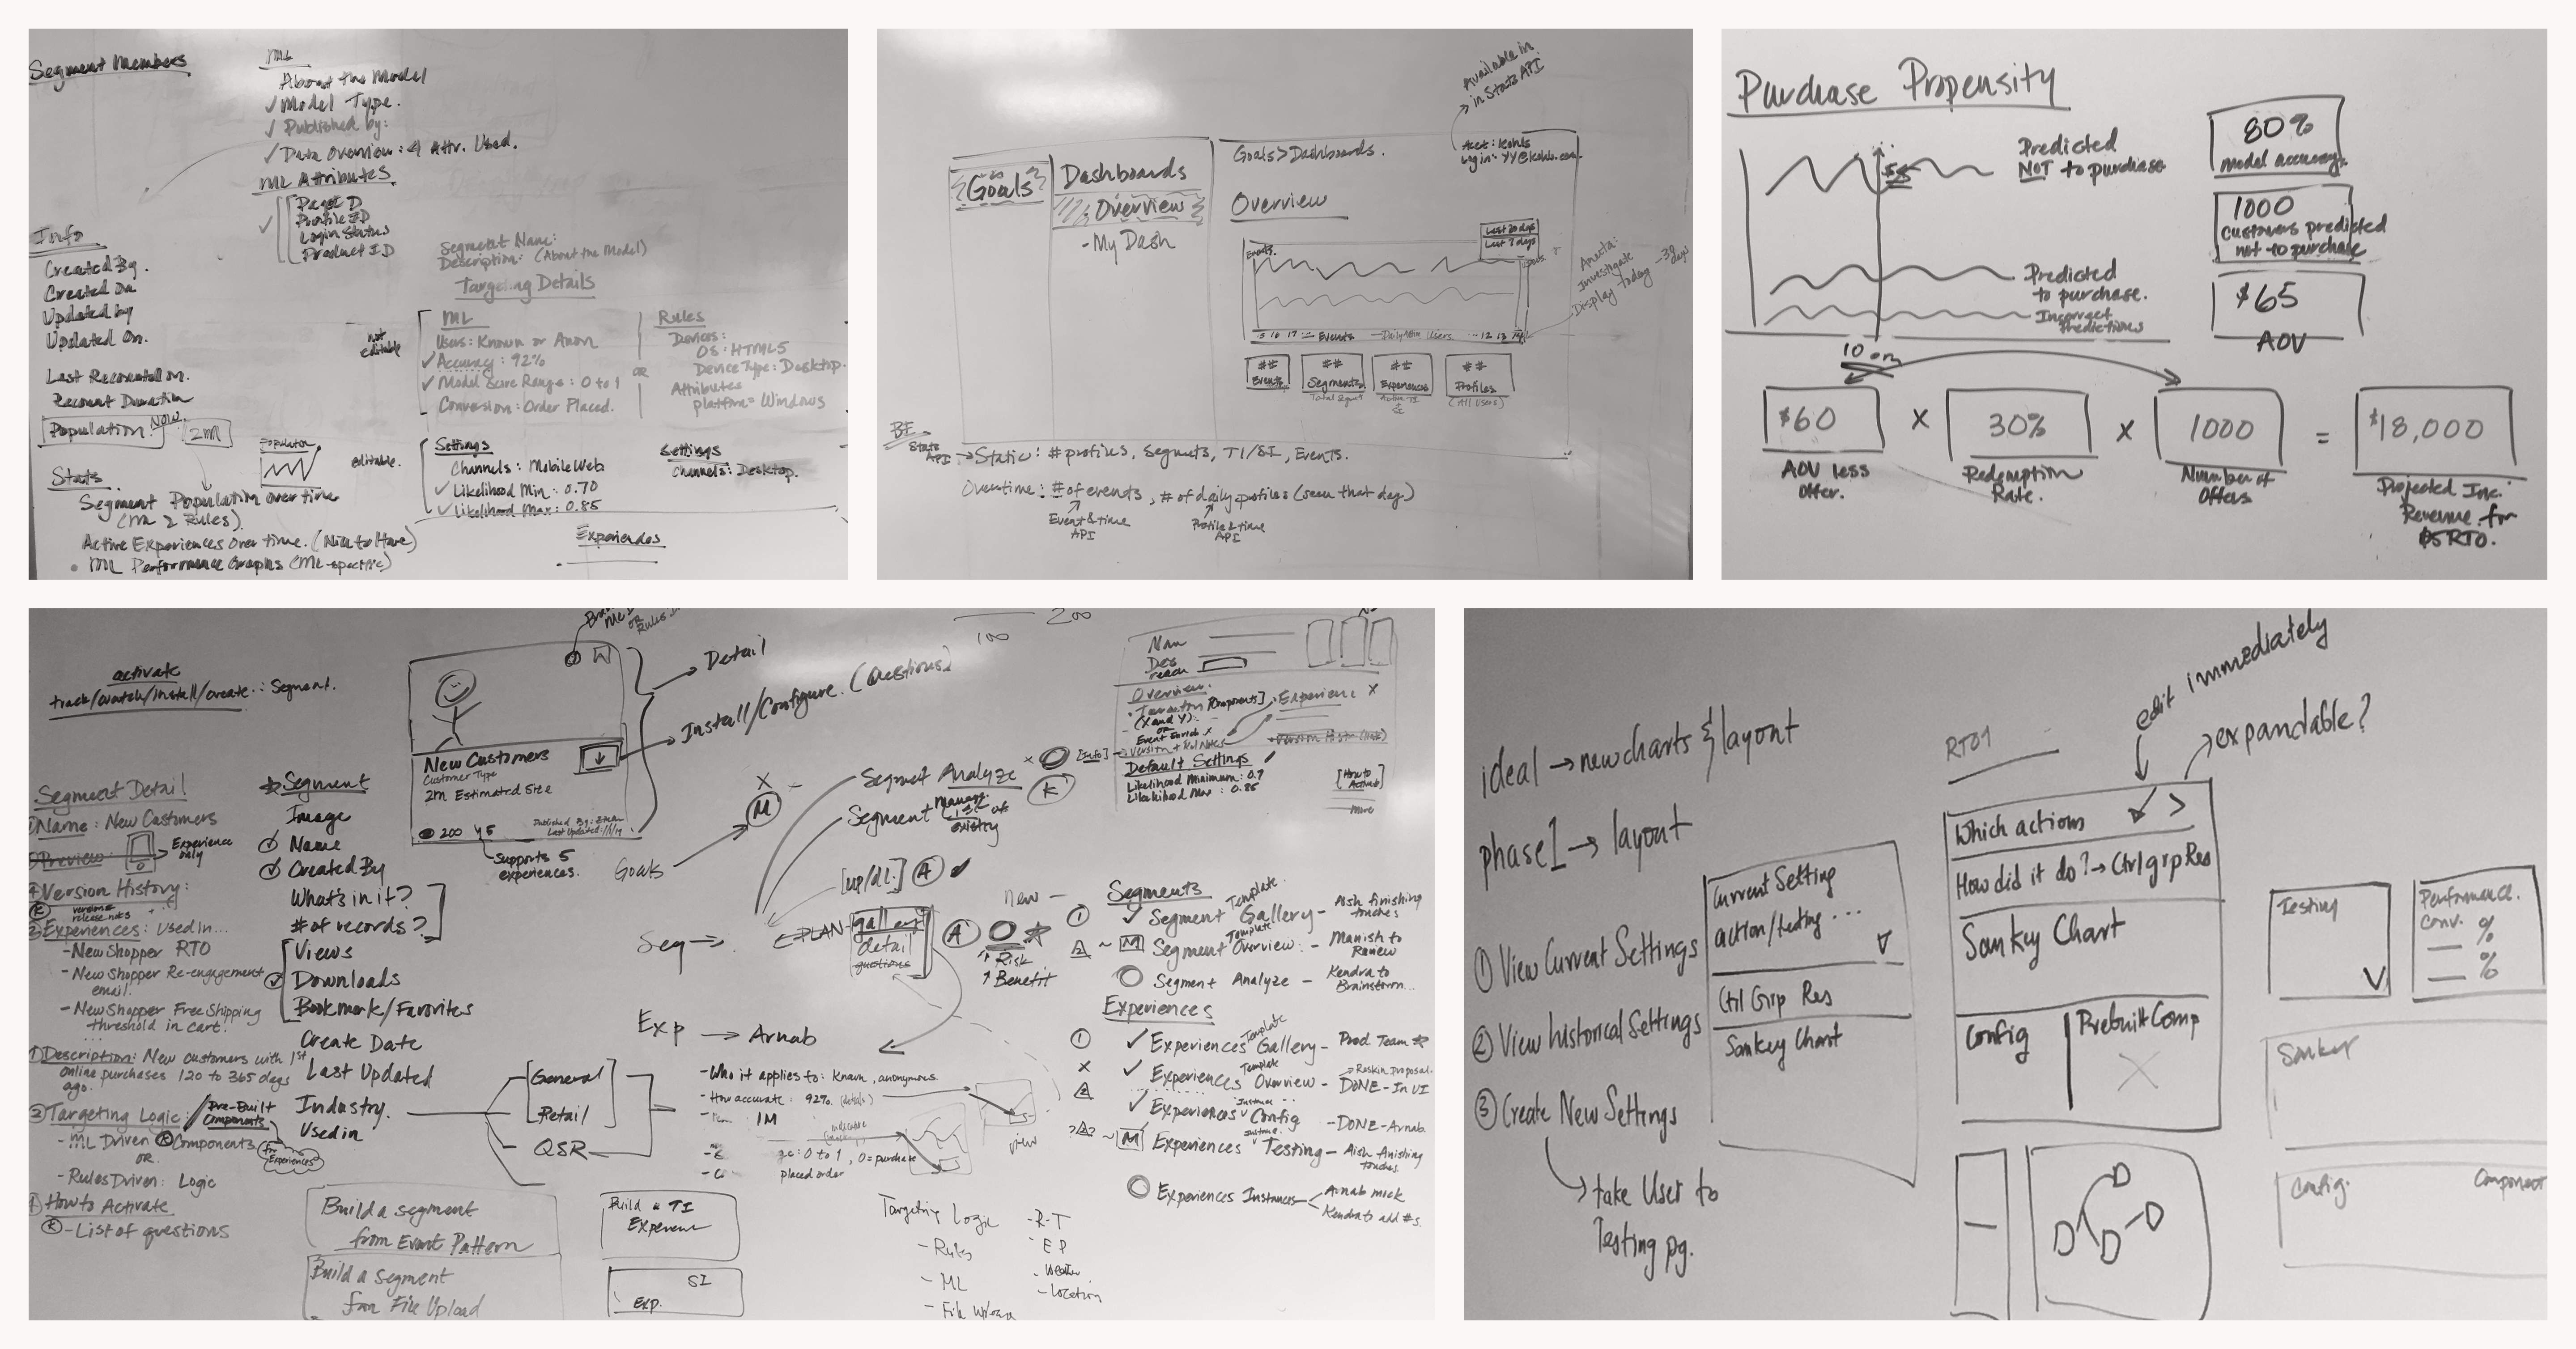 Segment Members
ML
About the Model
✓ Model Type.
✓ Published by:
✓ Data Overview: 4 Attr. Used.
ML Attributes
Page ID
Profile ID
Login Status
Product ID
Info
Created By.
Created On
Updated by
Updated On.
Last Recounted on.
Recount Duration
Population Now
2M
Population
Stats
Segment Population over time
(ML & Rules)
Active Experiences Over time. (Nice to Have)
• ML Performance Graphs (ML-specific)
Segment Name:
Description: (About the Model)
Targeting Details
not editable
ML
Users: Known or Anon
✓ Accuracy: 92%
✓ Model Score Range: 0 to 1
Conversion: Order Placed.
OR
Rules
Devices:
OS: HTML5
Device Type: Desktop.
Attributes
platform = Windows
editable.
Settings
Channels: Mobile Web
✓ Likelihood Min: 0.70
✓ Likelihood Max: 0.85
Settings
Channels: Desktop.
Experiences
Available in
in Stats API
Acct: Kohls
Login: YY@kohls.com
Goals
Dashboards
Overview
- My Dash
Goals > Dashboards.
Overview
Last 30 days
Last 7 days
Events
Investigate
Display today - 30 days
## Events
## Segments
## Experiences
## Profiles
(All Users)
BE
Stats API → Static: # profiles, Segments, TI/SI, Events.
Overtime: # of events, # of daily profiles (seen that day)
Event & time API
Profile & time API
Purchase Propensity
Predicted
NOT to purchase
Predicted
to purchase.
Incorrect
Predictions
80%
model accuracy
1000
customers predicted
not to purchase
$65
AOV
$60 X 30% X 1000 = $18,000
AOV less
Offer.
Redemption
Rate.
Number of
Offers
Projected Inc.
Revenue for
$5 RTO.
activate
track/watch/install/create.: Segment.
Segment Detail
Name: New Customers
Preview:
Experience only
Version History:
Experiences: Used in...
- New Shopper RTO
- New Shopper Re-engagement
email.
- New Shopper Free Shipping
threshold in cart.
Description: New customers with 1st
online purchases 120 to 365 days
ago.
Targeting Logic:
Pre-Built
Components
- ML Driven Components
OR
- Rules Driven: Logic
for Experiences
How to Activate
- List of questions
Segment
Image
Name
Created By
What's in it?
# of records?
Views
Downloads
Bookmark/Favorites
Create Date
Last Updated
Industry.
Used in
General
Retail
QSR
New Customers
Customer Type
2m Estimated Size
200 5
Last Updated
Supports 5
experiences.
Detail
Install/Configure. (Questions)
100
200
Goals
M
Segment Analyze
Segment Manage
existing
[up/dl.] A
Seg →
PLAN
gallery
detail
questions
↑ Risk
↑ Benefit
Exp → Arnab
- Who it applies to: known, anonymous
- How accurate: 92%
1M
0 to 1, 0 = purchase
placed order
view
Build a segment
from Event Pattern
Build a segment
from File Upload
Build a TI
Experience
SI
Exp.
Targeting Logic
- Rules
- ML
- File Upload
- R-T
- EP
- Weather
- Location
Overview
Experience
Default Settings
Likelihood Minimum: 0.7
Likelihood Max: 0.85
[How to Activate]
more
new
Segments
✓ Segment Template Gallery - Aish finishing touches
Segment Template Overview: - Manish to Review
Segment Analyze - Kendra to Brainstorm...
Experiences
✓ Experiences Template Gallery - Prod Team
✓ Experiences Template Overview - DONE - In UI
✓ Experiences Instance Config - DONE - Arnab.
Experiences Testing - Aish finishing touches.
Experiences Instances
Arnab mock
Kendra to add #s.
ideal → new charts & layout
phase 1 → layout
① View Current Settings
② View historical Settings
③ Create New Settings
→ take User to
Testing pg.
Current Setting
action/testing ...
Ctrl Grp Res
Sankey Chart
RTO1
edit immediately
expandable?
Which actions
How did it do? → Ctrl grp Res
Sankey Chart
Config
Prebuilt Comp
Testing
Performance.
Conv. %
%
Sankey
Config.
Component